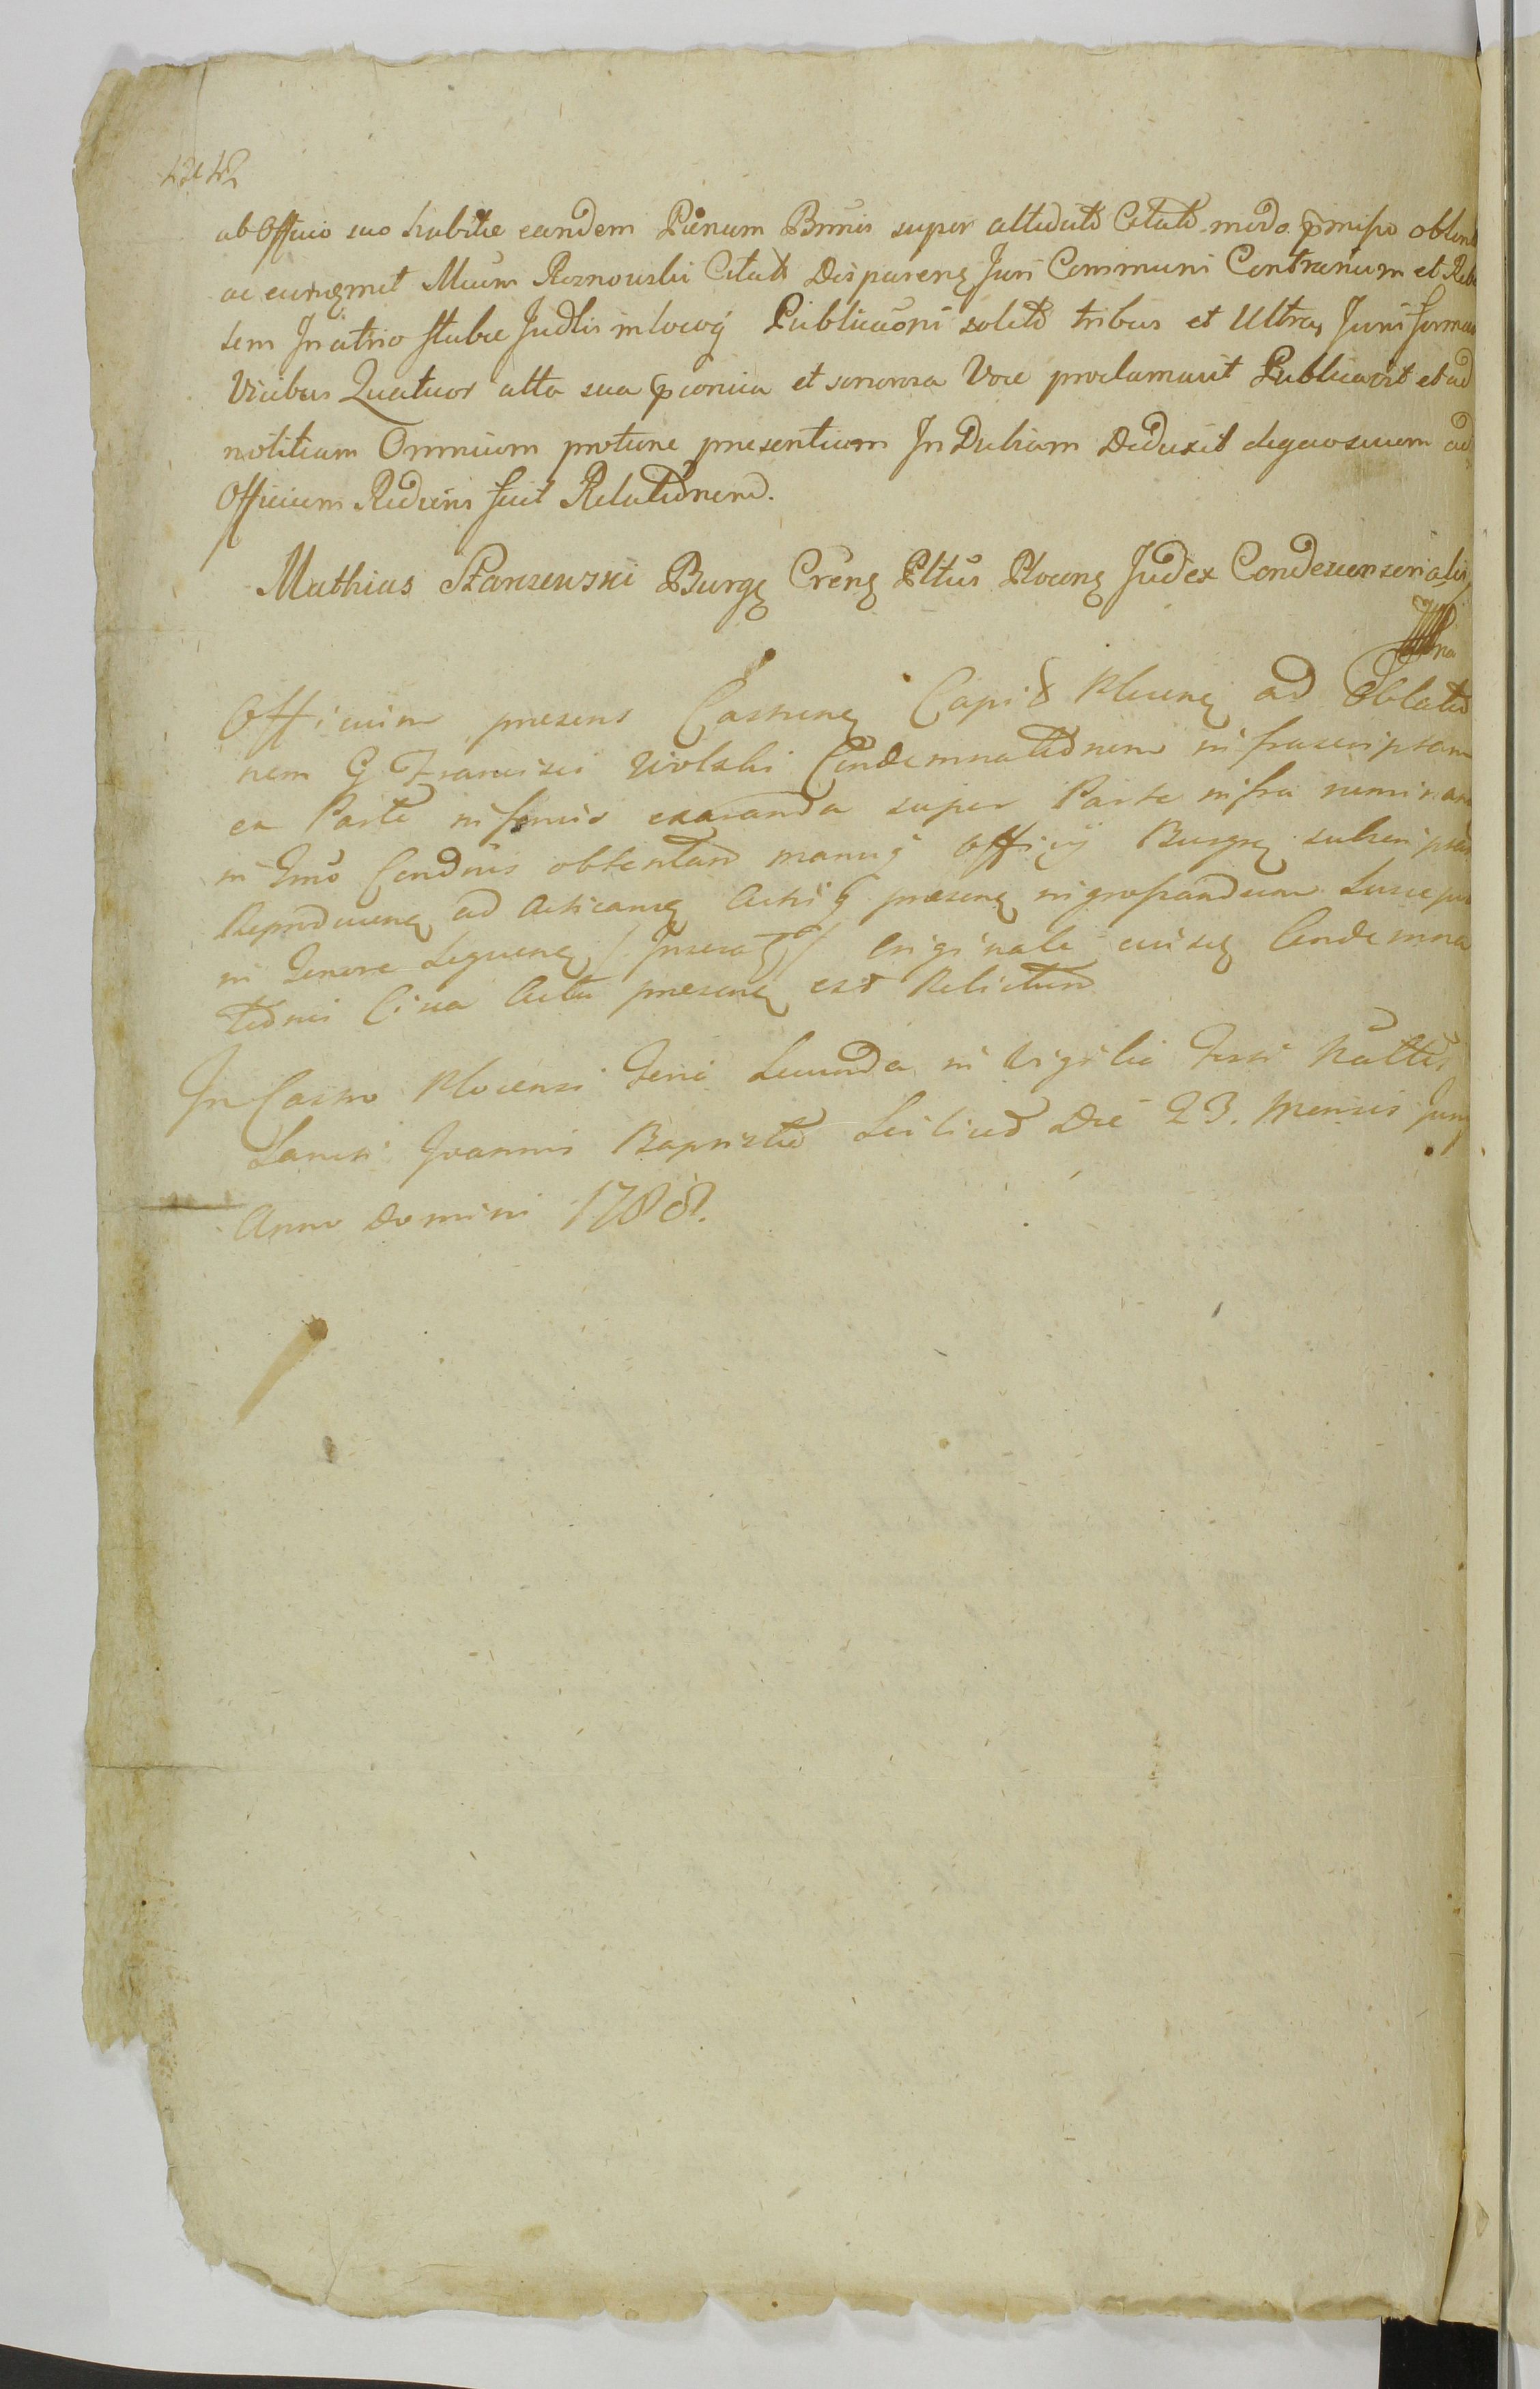 ab Officio suo habitæ eandem Pænam Bnnis super attudatto Citatto modo pmiso obtent
ac eund Mcum Roznowski Citatt Dispareng Juri Communi Contrarium et Rebe
lem In atrio stubæ Judlis in locoq Publicaõni solito tribus et Ultra, Juris forma
Vicibus Quatuor alta sua pconica et sonorosa Voce proclamavit Publicavit et ad
notitiam Omnium protunc presentium In Dubiam Deduxit de quo suum ad
Officium Rediens fecit Relationem.
Mathias Staniewski Burg Creng Pltus Plocens Judex Condescensorialis
Officium presens Castrens Capit Plocens ad Oblatio
nem G Francisci Wolski Condemnationem infrascriptam
ex Parte inferius exaranda super Parte infra nominan
in Tmno Condnis obtentam manuq officij Burgr subscriptam
Reproducens ad Acticans Actisq presens ingrossandum Suscepit
in Tenore Sequens / Inserat / Originale eiusq Condemna
tionis Circa Acta presens est Relictum
In Castro Plocensi Feria Secunda in Vigilia Festi Nattis
Sancti Joannis Baptistæ Scilicet Die 23. Mensis Junij
Anno Domini 1788.